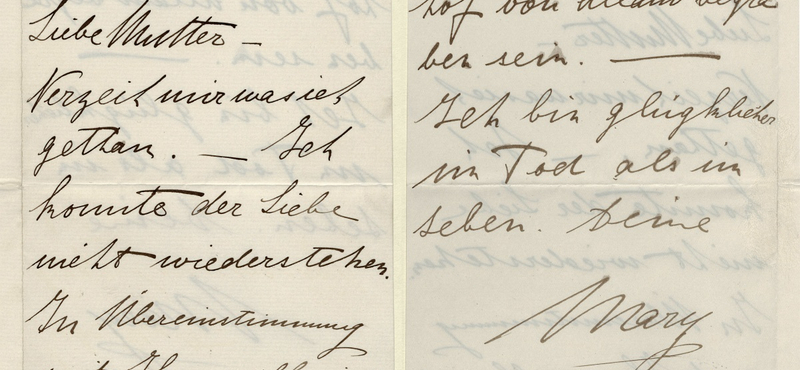 Liebe Mutter –
Verzeih mir was ich
gethan. — Ich
konnte der Liebe
nicht wiederstehen.
In Übereinstimmung
hof von Alland begra
ben sein. —
Ich bin glügklicher
im Tod als im
Leben. Deine
Mary